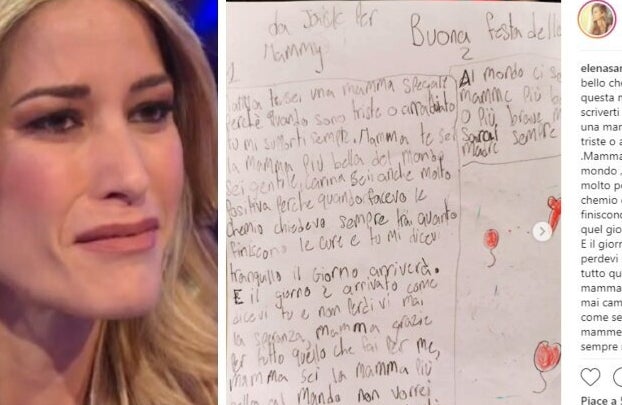 da Josie Per
Mammy
Buona festa delle
1
2
Mamma tu sei una mamma speciale
Perchè quando sono triste o arrabbiato
tu mi supporti sempre. Mamma te sei
la mamma più bella del mondo
sei gentile, carina sei anche molto
positiva Perche quando facevo le
chemio chiedevo sempre tra quanto
finiscono le cure e tu mi dicevi
tranquillo il Giorno arriverà.
E il giorno è arrivato come
dicevi tu e non perdevi mai
la speranza, mamma grazie
per tutto quello che fai per me,
mamma sei la mamma più
bella del mondo non vorrei
Al mondo ci s
mamme più b
o più brave m
sarai sempre
elenasan
bello che
questa m
scriverti
una mam
triste o a
.Mamma
mondo ,
molto po
chemio
finiscono
quel gio
E il giorn
perdevi
tutto qu
mamma
mai cam
come se
mamme
sempre
Piace a 5